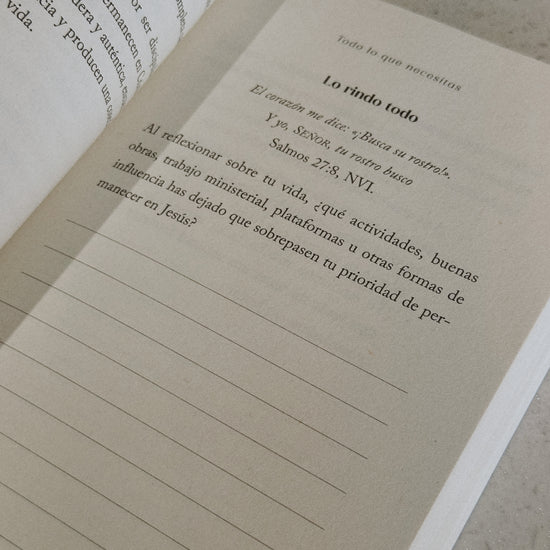 ser disc
permanecen en C
dera y auténtica, en
cia y producen una com
vida.
Todo lo que necesitas
Lo rindo todo
El corazón me dice: «¡Busca su rostro!».
Y yo, SEÑOR, tu rostro busco
Salmos 27:8, NVI.
Al reflexionar sobre tu vida, ¿qué actividades, buenas
obras, trabajo ministerial, plataformas u otras formas de
influencia has dejado que sobrepasen tu prioridad de per-
manecer en Jesús?